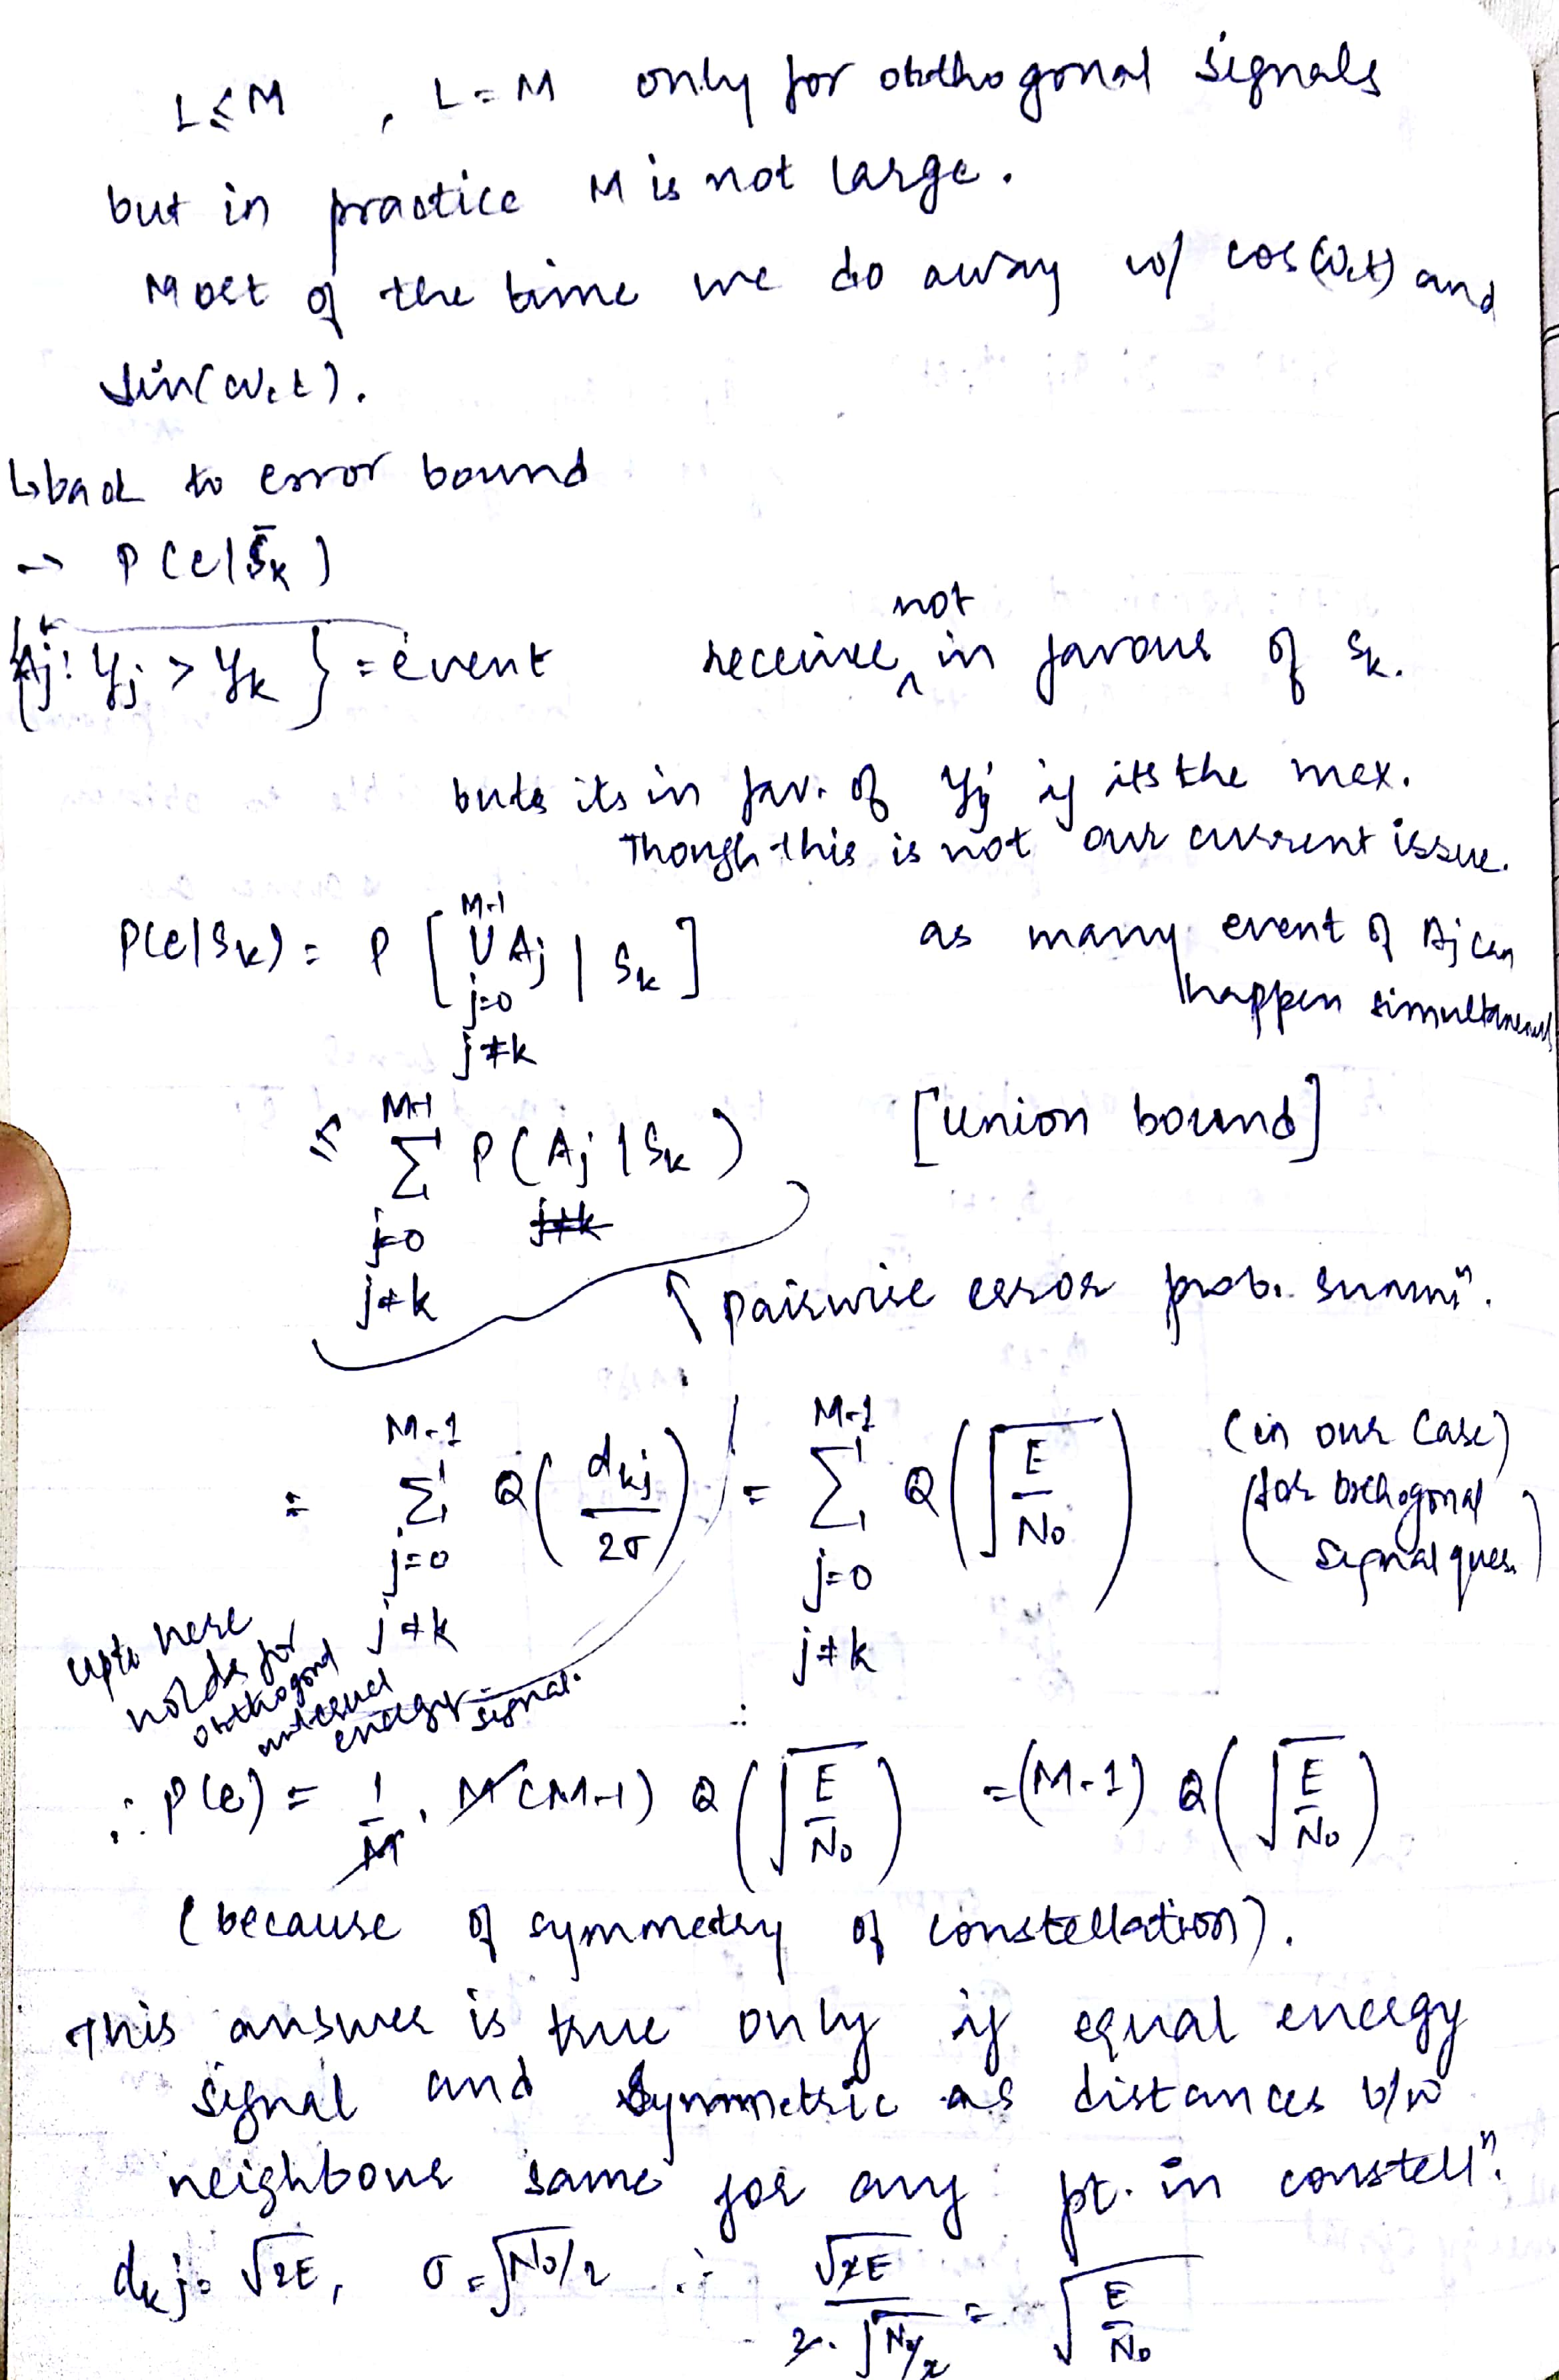 L ≤ M , L = M only for orthogonal signals
but in practice M is not large.
Most of the time we do away w/ cos(ωct) and
sin(ωct).
↳ back to error bound
→ P(e|s̄k)
{Aj: yj > yk} = event receive not in favour of sk.
but its in fav. of yj if its the max.
Though this is not our current issue.
P(e|sk) = P [ M-1 ∪ j=0 j≠k Aj | sk ] as many event of Aj can
happen simultaneously
≤ M-1 Σ j=0 j≠k P(Aj|sk) [union bound]
↑ pairwise error prob. summⁿ.
= M-1 Σ j=0 j≠k Q(dkj/2σ) = M-1 Σ j=0 j≠k Q(√(E/N₀)) (in our case)
(for orthogonal
signal ques.)
upto here
holds for
orthogonal
unequal
energy signal.
∴ P(e) = 1/M . M(M-1) Q(√(E/N₀)) = (M-1) Q(√(E/N₀))
(because of symmetry of constellation).
This answer is true only if equal energy
signal and symmetric as distances b/w
neighbour same for any pt. in constellⁿ.
dkj = √2E, σ = √N₀/2 ∴ √2E / 2.√N₀/2 = √(E/N₀)